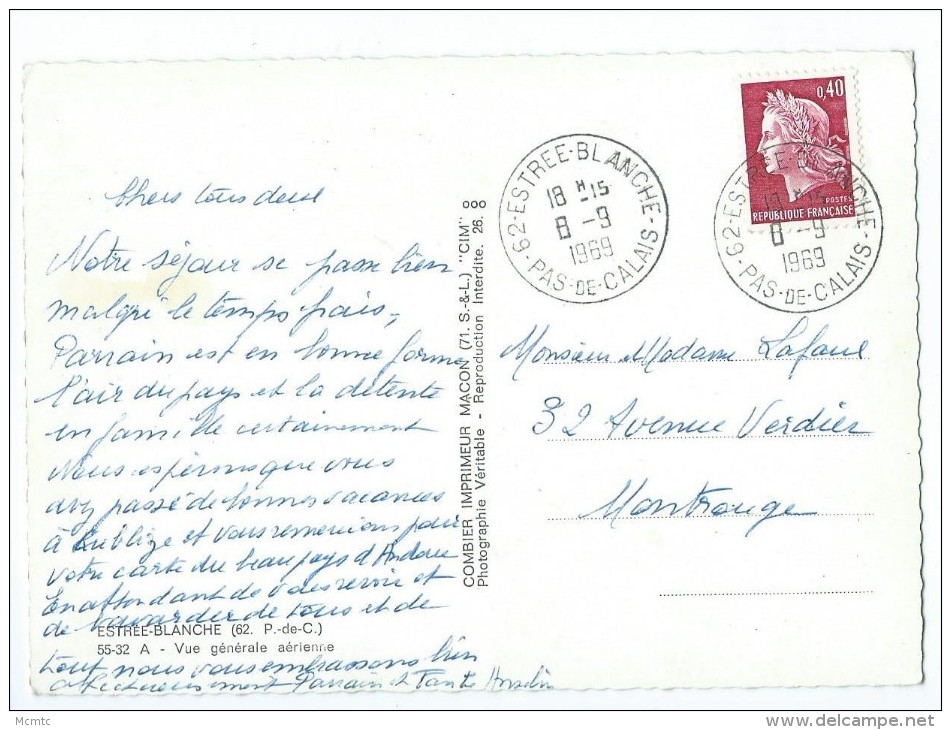 Chers tous deux
Notre séjour se passe bien
malgré le temps frais,
Parrain est en bonne forme
l'air du pays et la détente
en famille certainement
Nous espérons que vous
avez passé de bonnes vacances
à et vous remercions pour
votre carte du beau pays d'Andorre
En attendant de vous revoir et
de bavarder de tous et de
tout nous vous embrassons bien
affectueusement Parrain et Tante
ESTRÉE-BLANCHE (62. P.-de-C.)
55-32 A - Vue générale aérienne
COMBIER IMPRIMEUR MACON (71. S.-&-L.) "CIM"
Photographie Véritable - Reproduction Interdite. 26.
000
62-ESTREE-BLANCHE-
18 H 15
8 -9
1969
PAS-DE-CALAIS
0,40
POSTES
REPUBLIQUE FRANÇAISE
62-ESTREE-BLANCHE-
18 H 15
8 -9
1969
PAS-DE-CALAIS
Monsieur et Madame Lafaue
32 Avenue Verdier
Montrouge
Mcmtc
www.delcampe.net